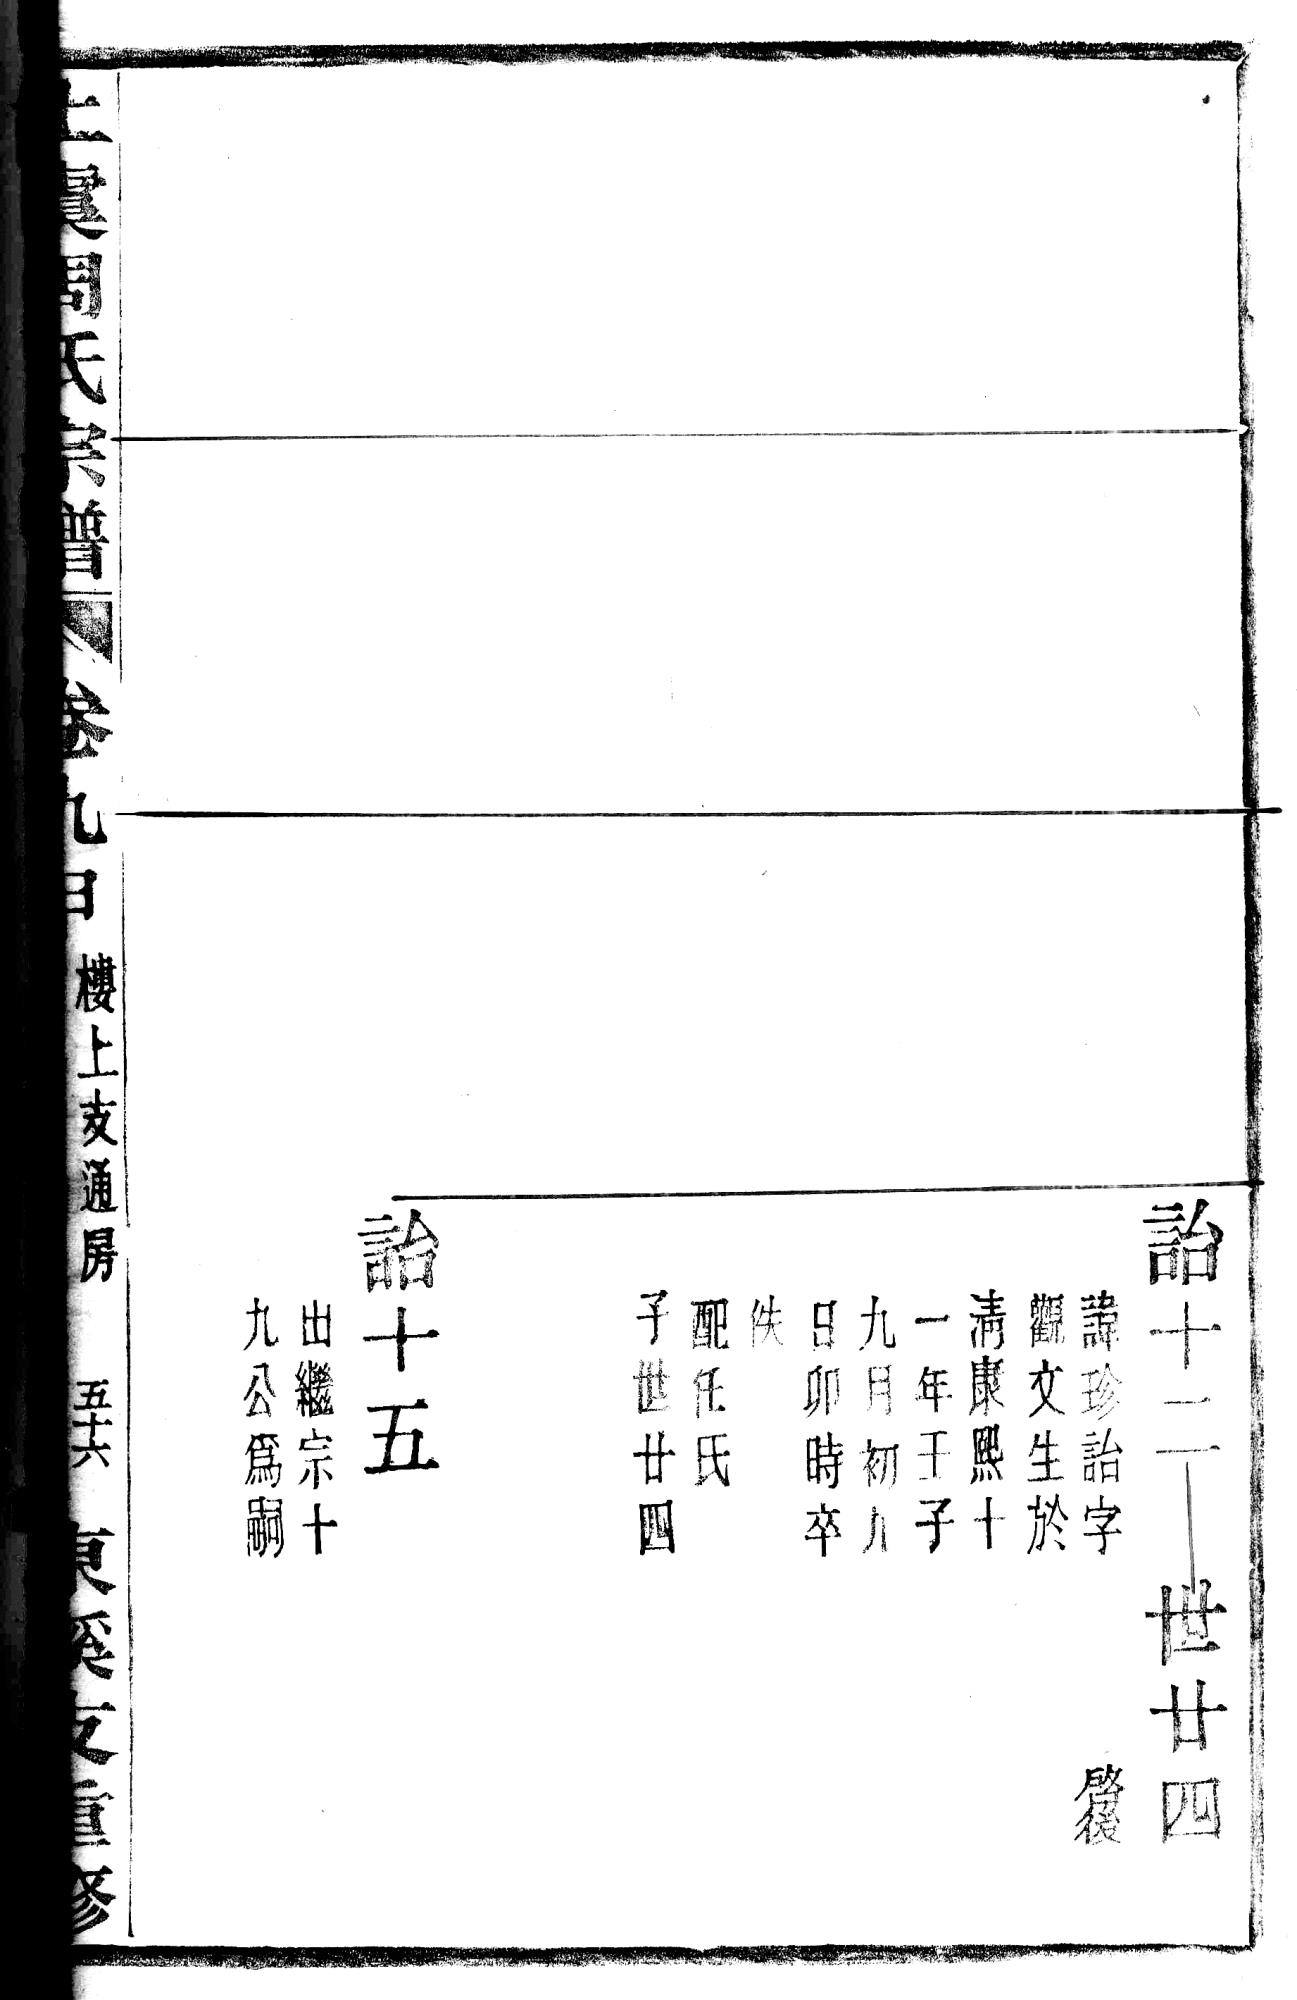 詒十二
世廿四
啓後
諱珍詒字
觀文生於
淸康熙十
一年壬子
九月初九
日卯時卒
佚
配任氏
子世廿四
詒十五
出繼宗十
九公爲嗣
上虞周氏宗譜
卷九曰
樓上友通房
五十六
東溪友重修